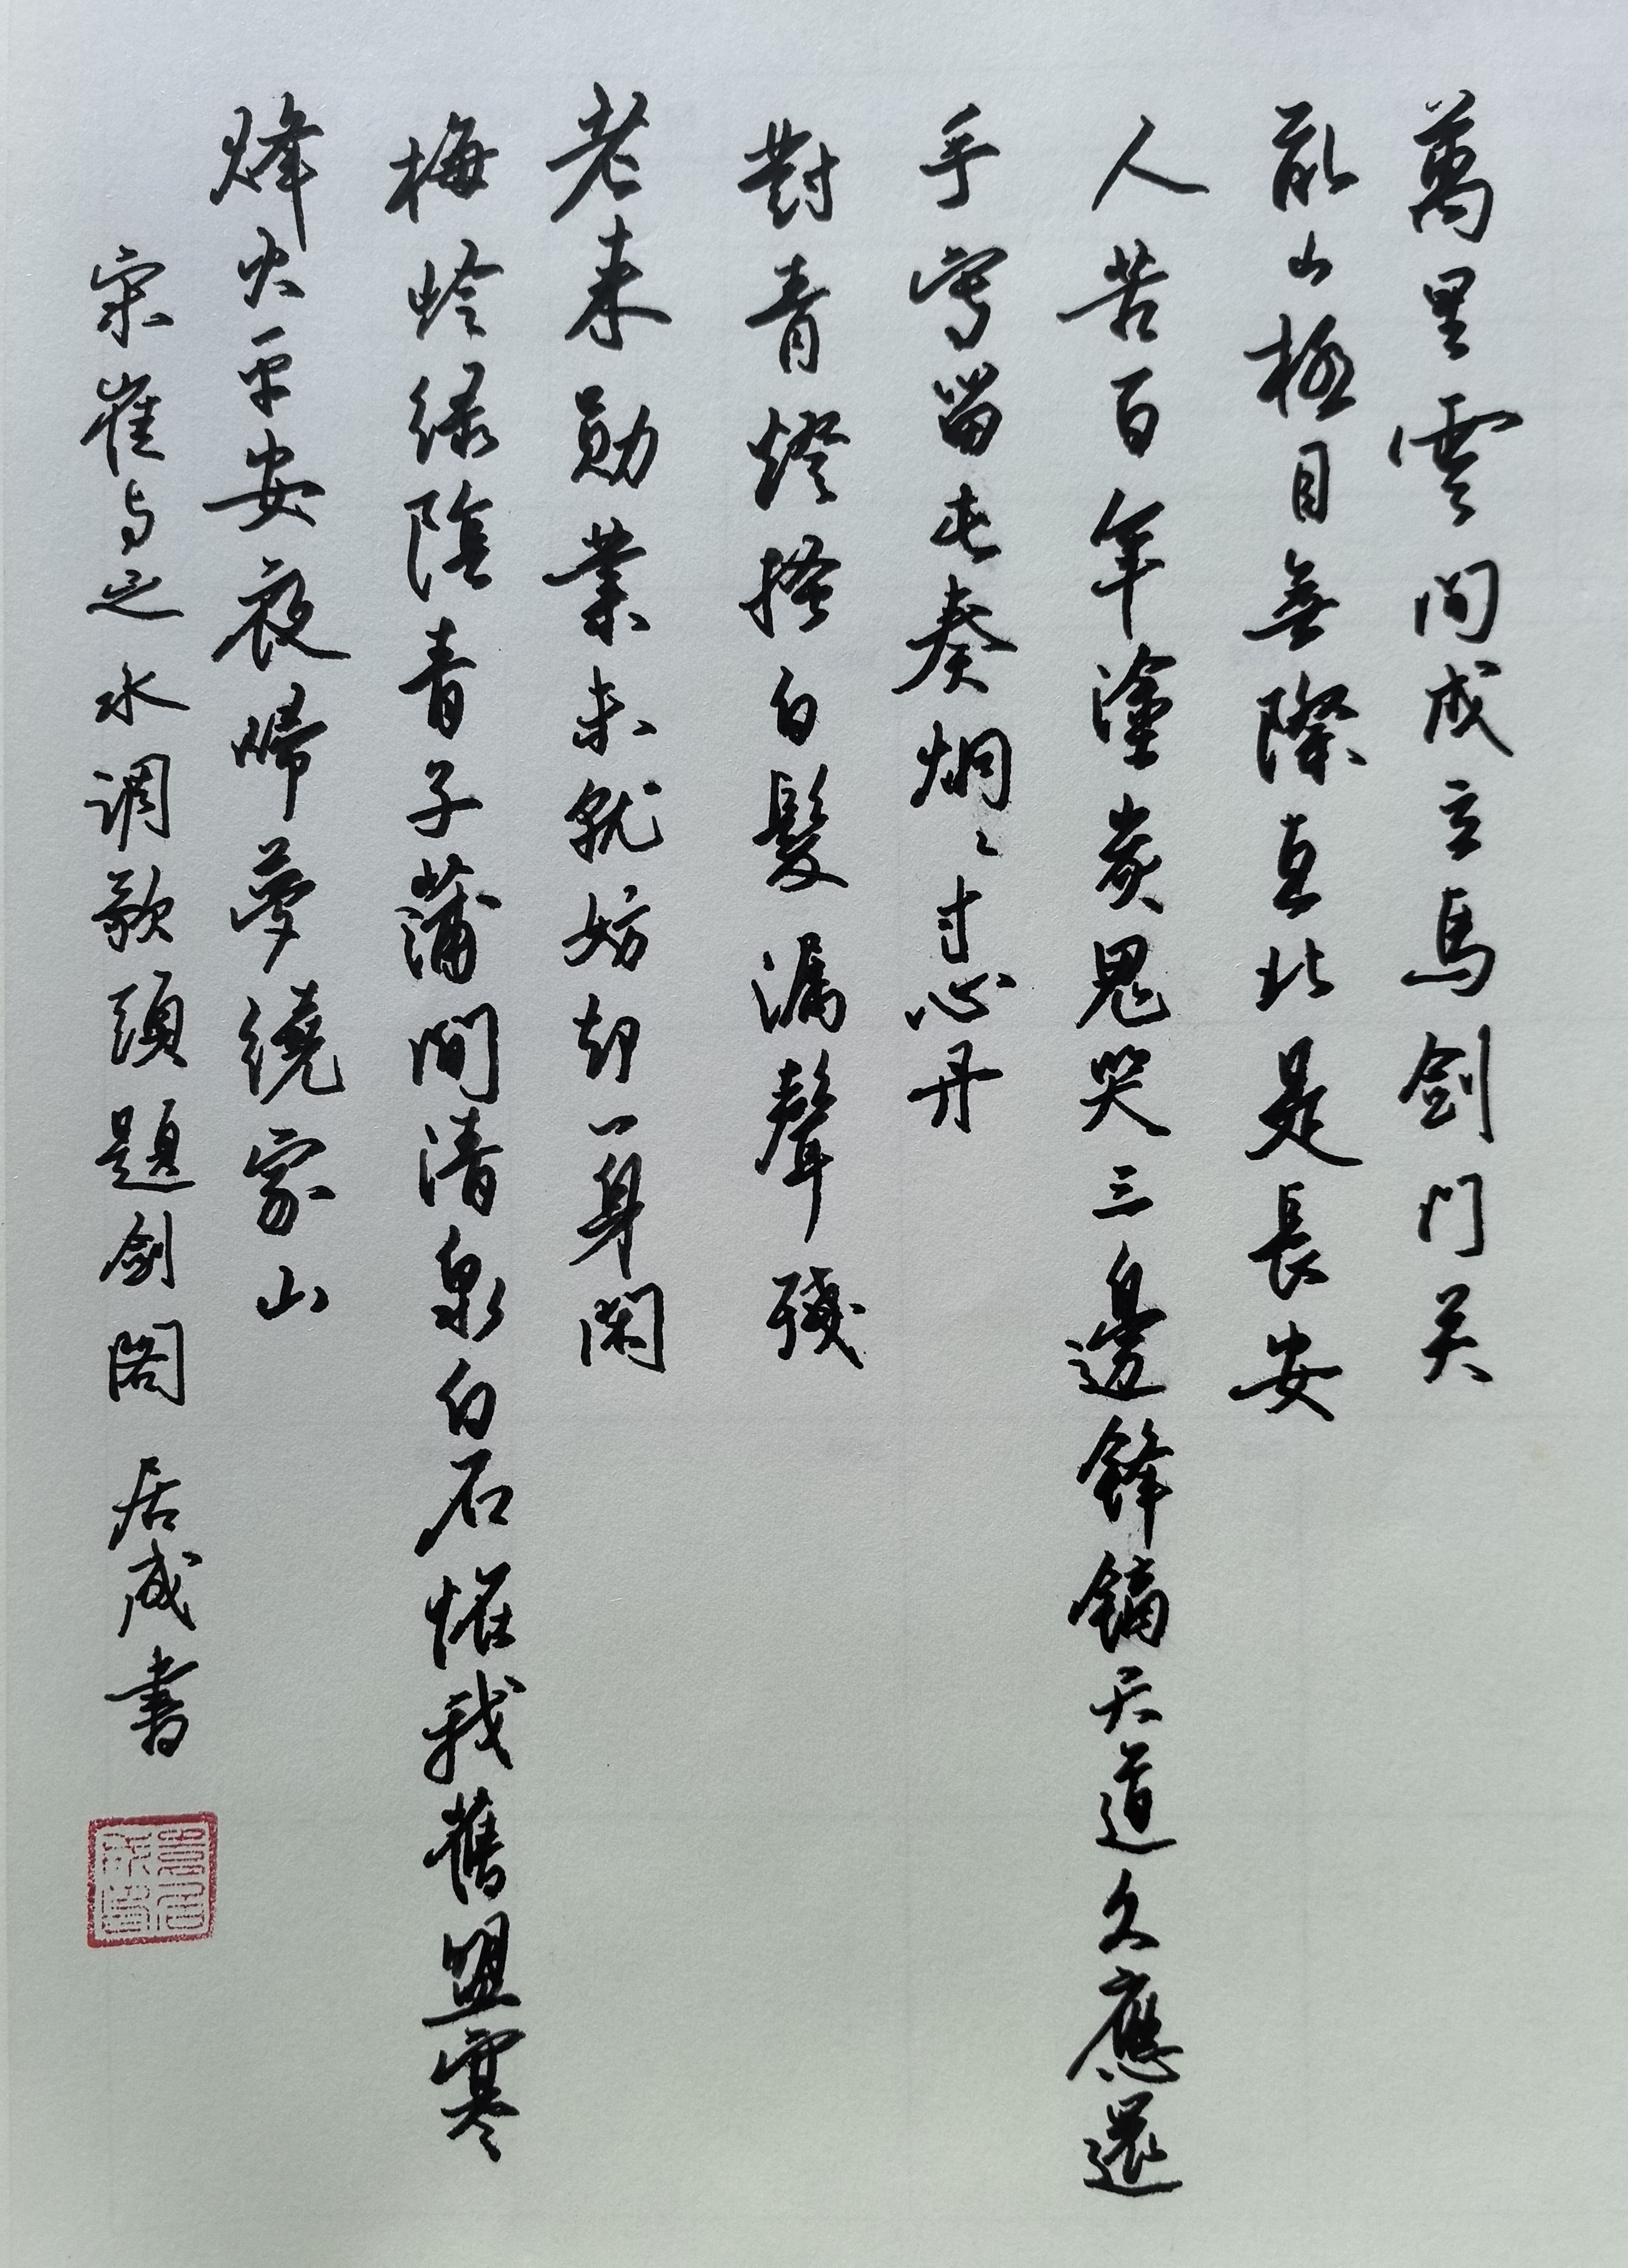 萬里雲间戍立馬剑门关
亂山極目無際直北是長安
人苦百年塗炭鬼哭三邊鋒鏑天道久應還
手寫留屯奏炯々寸心丹
對青燈搔白髮漏聲殘
老来勋業未就妨却一身閑
梅岭绿陰青子蒲澗清泉白石怪我舊盟寒
烽火平安夜歸夢繞家山
宋崔与之水调歌頭題剑阁 居成書